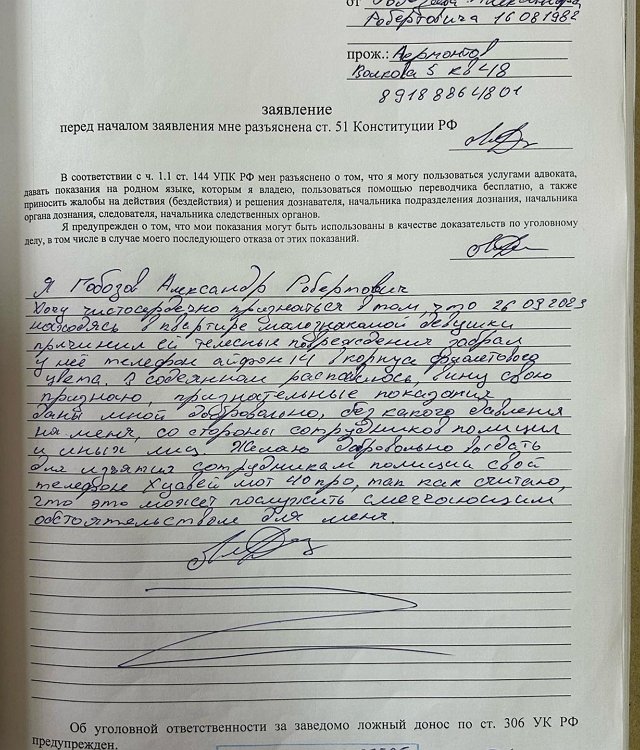 от
Робертовича 16 081982
прож.: Лермонтов
Волкова 5 кв 48
89188864801
заявление
перед началом заявления мне разъяснена ст. 51 Конституции РФ
В соответствии с ч. 1.1 ст. 144 УПК РФ мен разъяснено о том, что я могу пользоваться услугами адвоката,
давать показания на родном языке, которым я владею, пользоваться помощью переводчика бесплатно, а также
приносить жалобы на действия (бездействия) и решения дознавателя, начальника подразделения дознания, начальника
органа дознания, следователя, начальника следственных органов.
Я предупрежден о том, что мои показания могут быть использованы в качестве доказательств по уголовному
делу, в том числе в случае моего последующего отказа от этих показаний.
Я Гобозов Александр Робертович
Хочу чистосердечно признаться в том, что 26 09 2023
находясь в квартире малознакомой девушки
причинил ей телесные повреждения забрал
у неё телефон айфон 14 в корпусе фиолетового
цвета. В содеянном раскаиваюсь, вину свою
признаю, признательные показания
даны мной добровольно, без какого давления
на меня, со стороны сотрудников полиции
и иных лиц. Желаю добровольно выдать
для изъятия сотрудникам полиции свой
телефон Хуавей мот 40 про, так как считаю,
что это может послужить смягчающим
обстоятельством для меня.
Об уголовной ответственности за заведомо ложный донос по ст. 306 УК РФ
предупрежден.